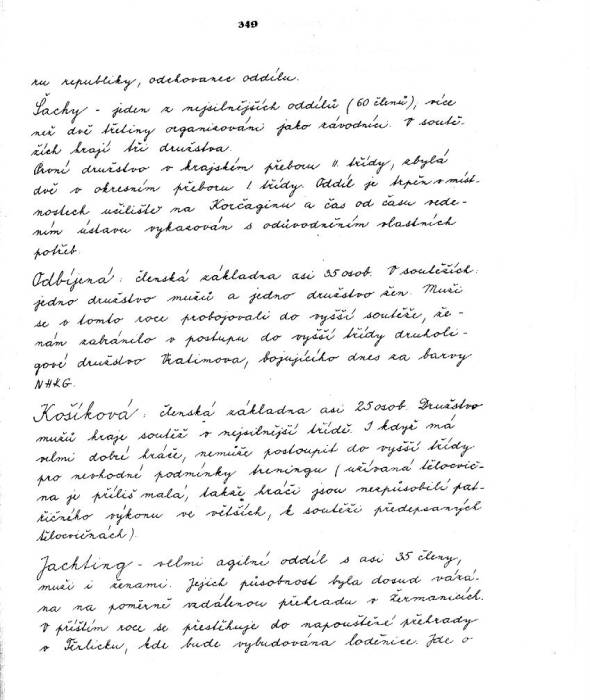 349
ru republiky, odchovanec oddílu.
Šachy - jeden z nejsilnějších oddílů (60 členů), více
než dvě třetiny organizováni jako závodníci. V soutě-
žích hrají tři družstva.
První družstvo v krajském přeboru II. třídy, zbylá
dvě v okresním přeboru I. třídy. Oddíl je trpěn v míst-
nostech učiliště na Korčaginu a čas od času vede-
ním ústavu vykazován s odůvodněním vlastních
potřeb.
Odbíjená: členská základna asi 35 osob. V soutěžích:
jedno družstvo mužů a jedno družstvo žen. Muži
se v tomto roce probojovali do vyšší soutěže, že-
nám zabránilo v postupu do vyšší třídy druholi-
gové družstvo Vratimova, bojujícího dnes za barvy
NHKG.
Košíková: členská základna asi 25 osob. Družstvo
mužů hraje soutěž v nejsilnější třídě. I když má
velmi dobré hráče, nemůže postoupit do vyšší třídy
pro nevhodné podmínky treningu (užívaná tělocvič-
na je příliš malá, takže hráči jsou nezpůsobilí pat-
řičného výkonu ve větších, k soutěži předepsaných
tělocvičnách).
Jachting - velmi agilní oddíl s asi 35 členy,
muži i ženami. Jejich působnost byla dosud vázá-
na na poměrně vzdálenou přehradu v Žermanicích.
V příštím roce se přestěhuje do napouštěné přehrady
v Těrlicku, kde bude vybudována loděnice. Jde o